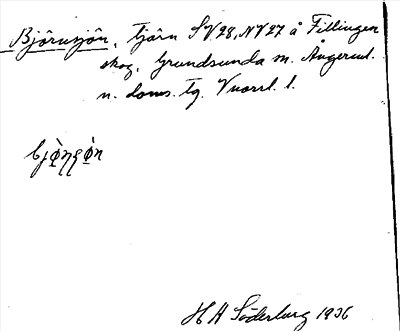 Björnsjön, tjärn SV28, NV27 å Fillingen
skog, Grundsunda sn. Ångerml.
n. doms. tg. Vnorrl. l.
H A Söderburg 1936